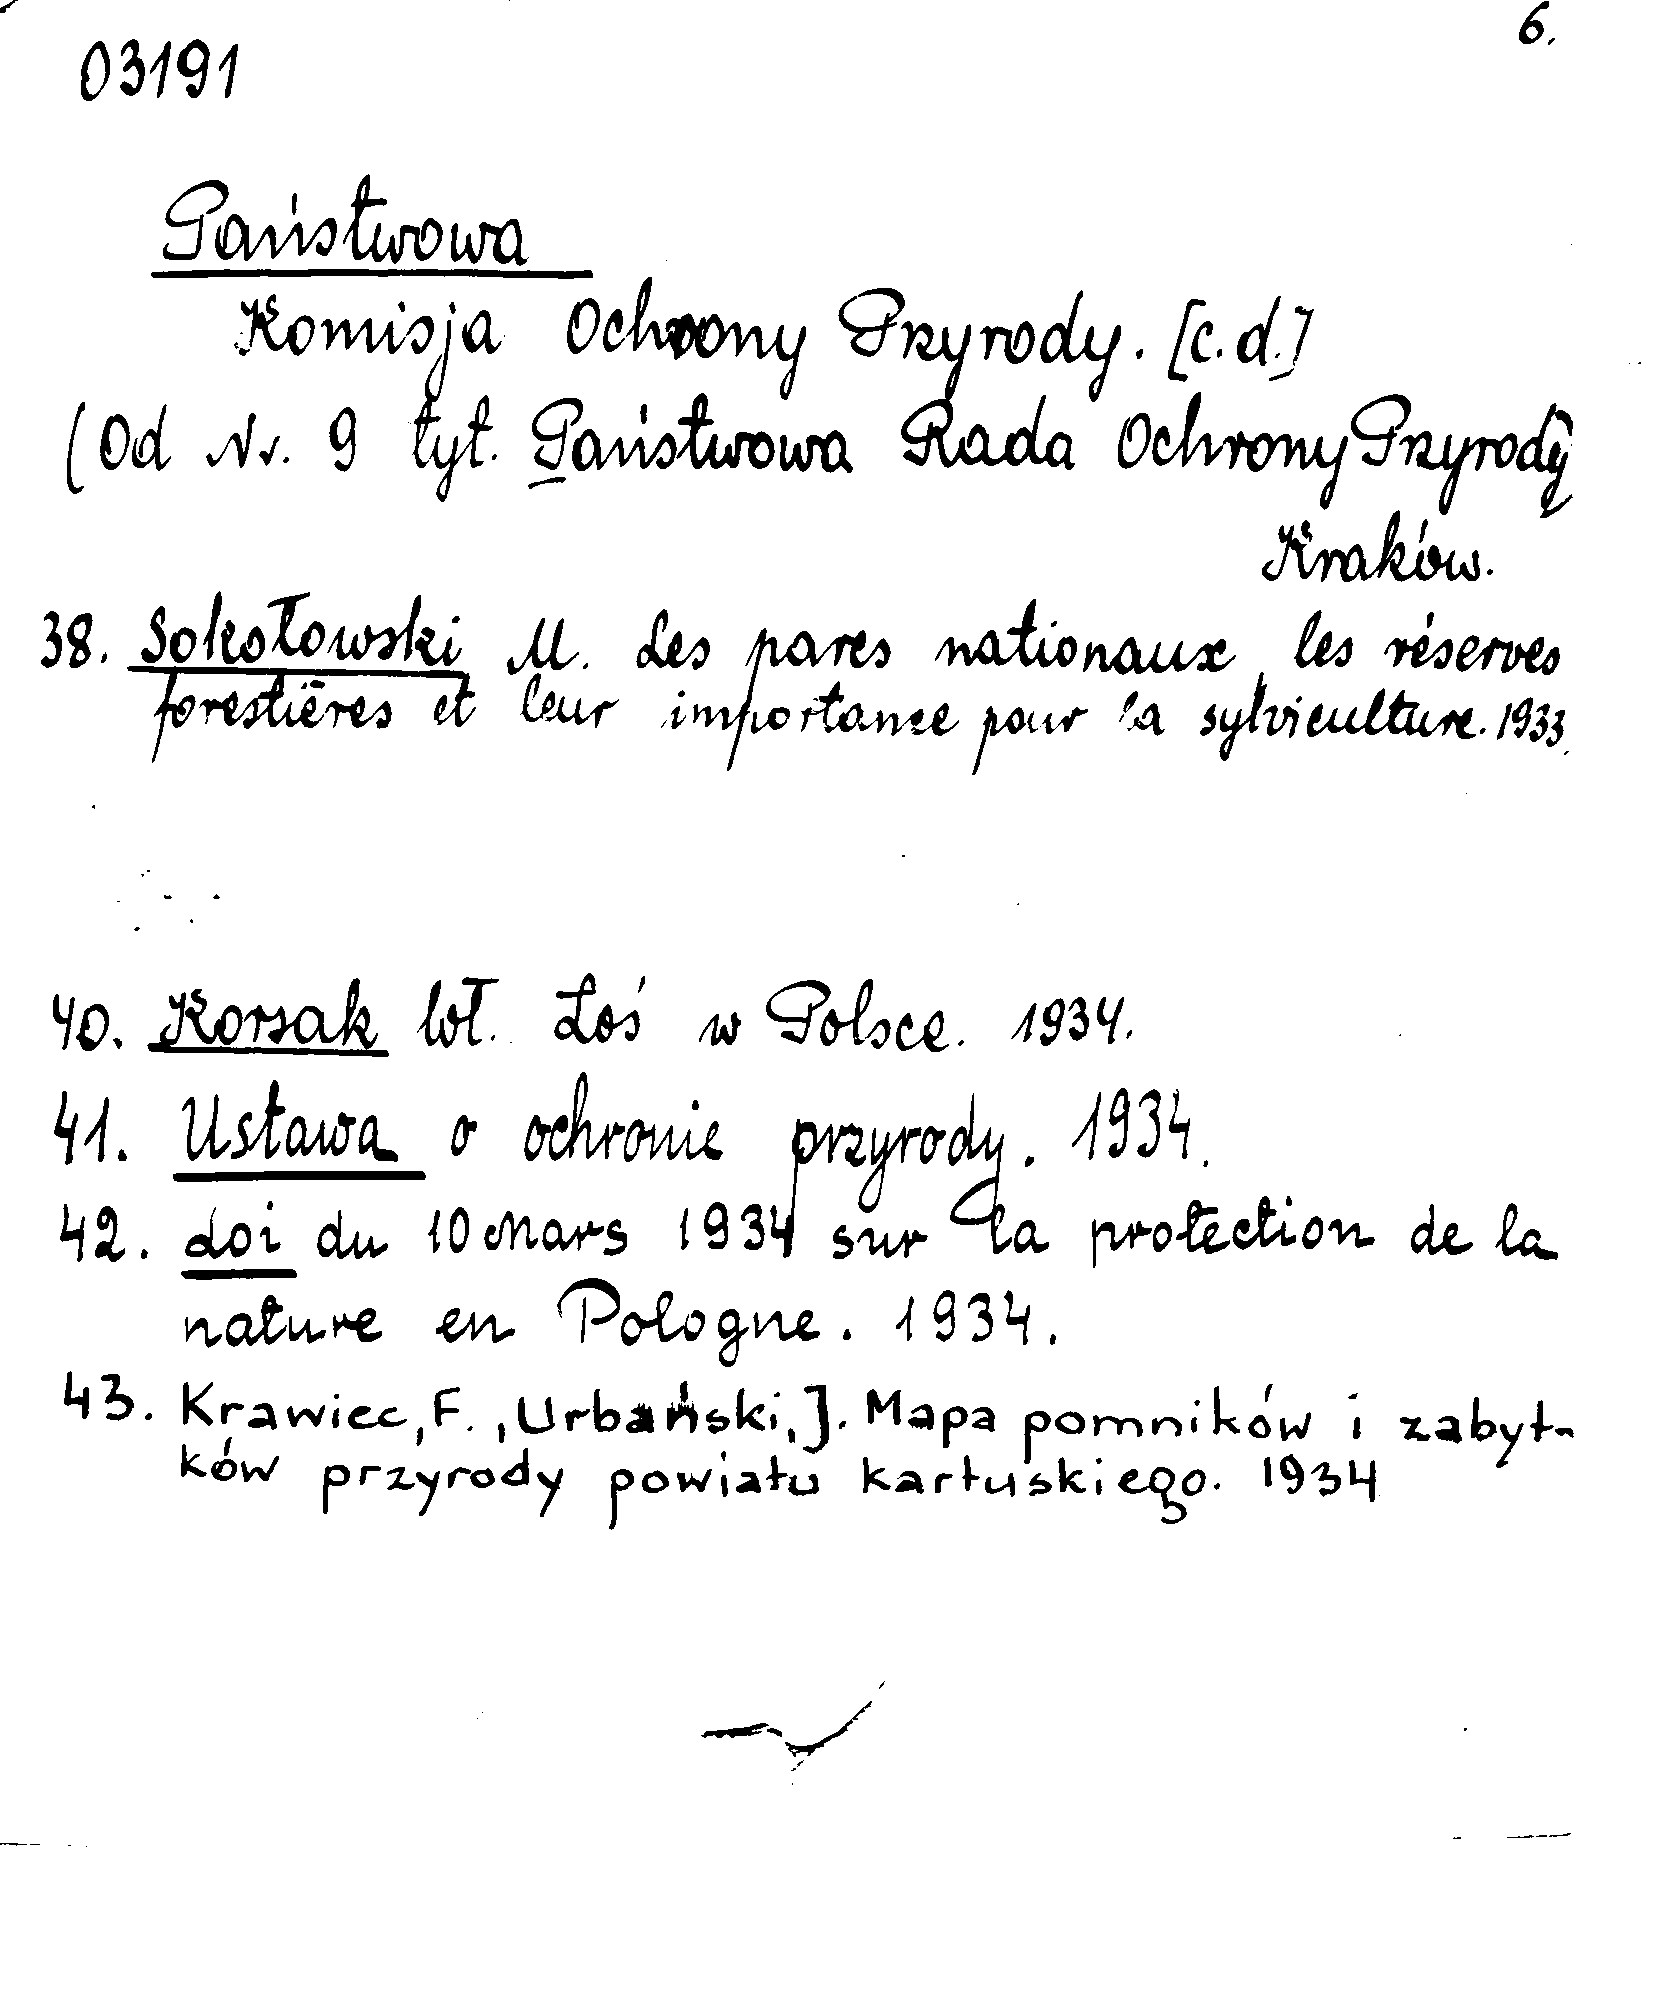 6.
03191
Państwowa
Komisja Ochrony Przyrody. [c.d.]
(Od Nr. 9 tyt. Państwowa Rada Ochrony Przyrody)
Kraków.
38. Sokołowski M. Les parcs nationaux, les réserves
forestiéres et leur importance pour la sylviculture. 1933.
40. Korsak Wł. Łoś w Polsce. 1934.
41. Ustawa o ochronie przyrody. 1934.
42. Loi du 10 Mars 1934 sur la protection de la
nature en Pologne. 1934.
43. Krawiec, F., Urbański, J. Mapa pomników i zabyt-
ków przyrody powiatu kartuskiego. 1934